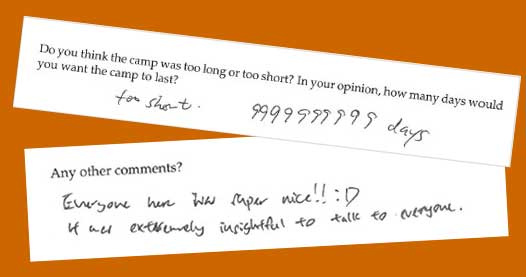 Do you think the camp was too long or too short? In your opinion, how many days would
you want the camp to last?
too short. 9999999999 days
Any other comments?
Everyone here was super nice!! :D
It was extremely insightful to talk to everyone.